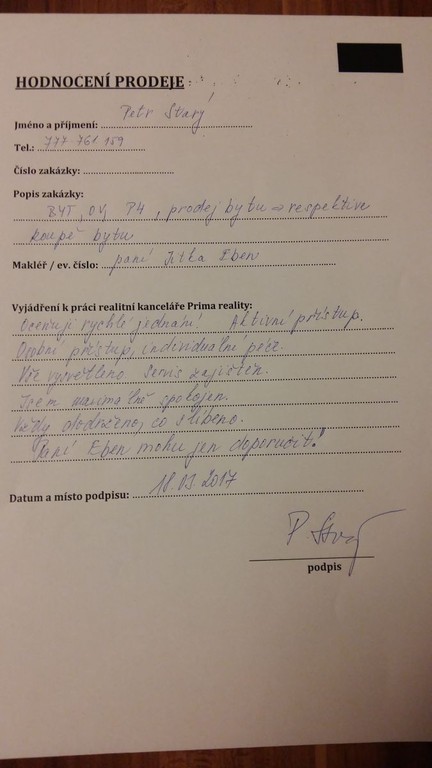 HODNOCENÍ PRODEJE :
Jméno a příjmení: Petr Starý
Tel.: 777 761 159
Číslo zakázky:
Popis zakázky:
BYT, OV, P4, prodej bytu → respektive
koupě bytu
Makléř / ev. číslo: paní Jitka Eben
Vyjádření k práci realitní kanceláře Prima reality:
Oceňuji rychlé jednání. Aktivní přístup.
Osobní přístup, individuální péče.
Vše vysvětleno. Servis zajištěn.
Jsem maximálně spokojen.
Vždy dodrženo, co slíbeno.
Paní Eben mohu jen doporučit!
Datum a místo podpisu: 18.03.2017
P Starý
podpis